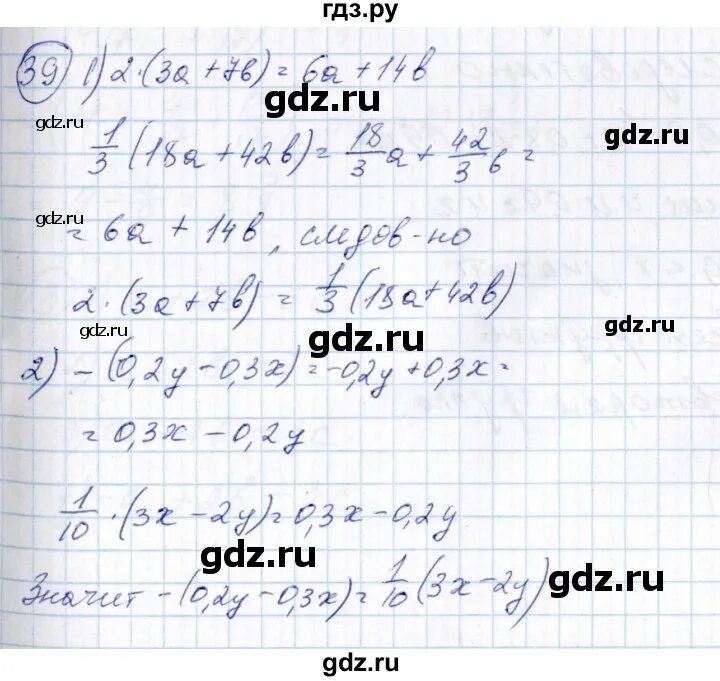 гдз.ру
39) 1) 2·(3a+7b) = 6a+14b
gdz.ru
gdz.ru
1/3(18a+42b) = 18/3a + 42/3b =
gdz.ru
gdz.ru
= 6a + 14b, следов-но
gdz.ru
2·(3a+7b) = 1/3(18a+42b)
gdz.ru
gdz.ru
gdz.ru
2) -(0,2y-0,3x) = -0,2y+0,3x =
= 0,3x - 0,2y
1/10·(3x-2y) = 0,3x-0,2y
gdz.ru
gdz.ru
Значит -(0,2y-0,3x) = 1/10(3x-2y)
gdz.ru